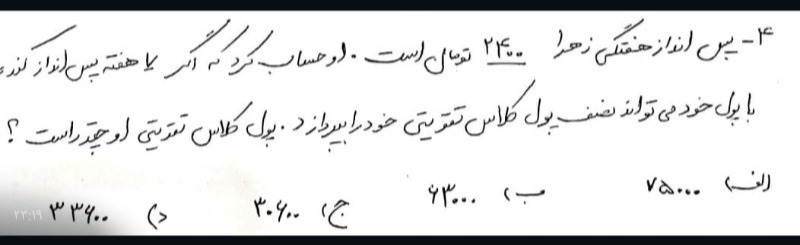 ۴- پس انداز هفتگی زهرا ۲۴۰۰ تومان است. او حساب کرد که اگر ۷ هفته پس انداز کند،
با پول خود می تواند نصف پول کلاس تقویتی خود را بپردازد. پول کلاس تقویتی او چقدر است؟
الف) ۷۵۰۰۰ ب) ۶۳۰۰۰ ج) ۳۰۶۰۰ د) ۳۳۶۰۰
۲۳:۱۹